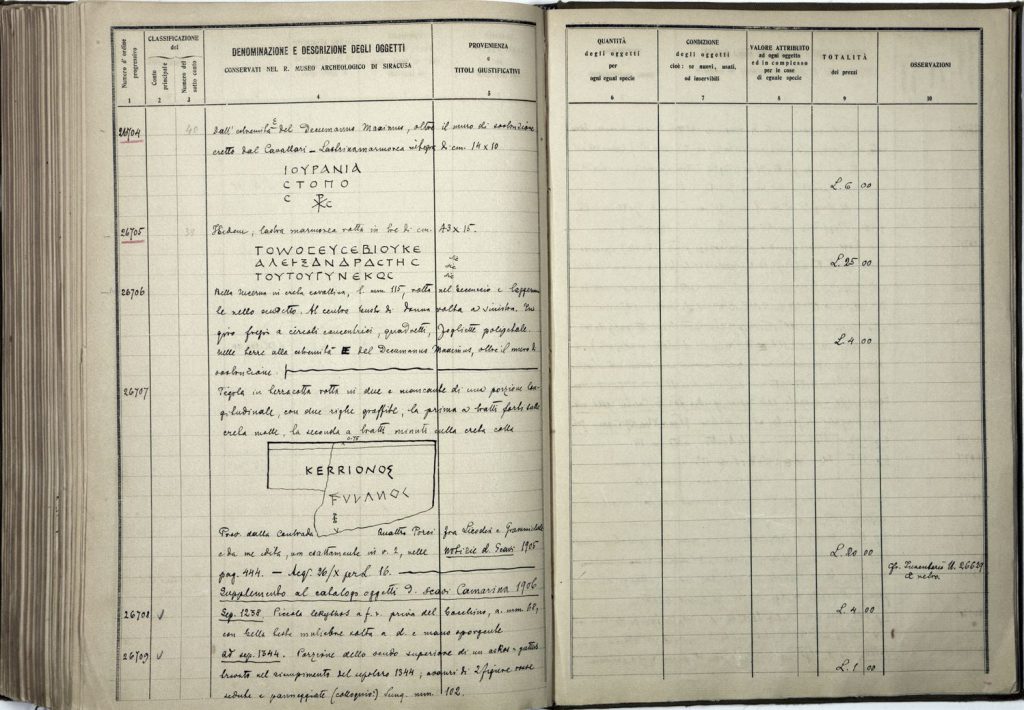 Numero d'ordine progressivo
CLASSIFICAZIONE del
Conto principale
Numero del sotto conto
DENOMINAZIONE E DESCRIZIONE DEGLI OGGETTI
CONSERVATI NEL R. MUSEO ARCHEOLOGICO DI SIRACUSA
PROVENIENZA
e
TITOLI GIUSTIFICATIVI
1 2 3 4 5
26704 40 dall'estremità E del Decumanus Maximus, oltre il muro di sostruzione
eretto dal Cavallari – di cm. 14 x 10
ΙΟΥΡΑΝΙΑ
CΤΟΠΟ
C ⳩C
26705 38 lastra marmorea rotta in tre di cm. 43 x 15.
ΤΟΠΟCΕΥCΕΒΙΟΥΚΕ sic
ΑΛΕΞΣΑΝΔΡΑCΤΗC sic
ΤΟΥΤΟΥΓΥΝΕΚΟC sic
26706 Bella lucerna in creta cavallina, l. mm 115, rotta nel beccuccio e leggerm
te nello scudetto. Al centro busto di donna volta a sinistra. In
giro fregio a circoli concentrici, quadretti, fogliette polipetale.
nelle terre alla estremità E del Decumanus Maximus, oltre il muro di
sostruzione.
26707 Tegola in terracotta rotta in due e mancante di una porzione lon
gitudinale, con due righe graffite, la prima a tratti forti sulla
creta molle, la seconda a tratti minuti sulla creta cotta
0.75
KERRIONOS
Prov. dalla contrada Quattro Porci fra Licodia e Grammichele
e da me edita, non esattamente in v. 2, nelle Notizie d. Scavi 1905
pag. 444. — Acq. 26/X per L 16.
Supplemento al catalogo oggetti d. scavi Camarina 1906
26708 v Sep. 1238. Piccola lekythos a f. r. priva del bocchino, a. mm 68,
con bella testa muliebre volta a d. e mano sporgente
26709 v Ad sep. 1344. Porzione dello scudo superiore di un askos - guttus
trovato nel riempimento del sepolcro 1344; avanzi di 2 figure rosse
sedute e panneggiate (colloquio?) Lung. mm. 102.
QUANTITÀ
degli oggetti
per
ogni egual specie
CONDIZIONE
degli oggetti
cioè: se nuovi, usati,
od inservibili
VALORE ATTRIBUITO
ad ogni oggetto
ed in complesso
per le cose
di eguale specie
TOTALITÀ
dei prezzi
OSSERVAZIONI
6 7 8 9 10
L. 6 00
L. 25 00
L. 4 00
L. 20 00
Cfr. Inventario N. 26639
a retro.
L. 4 00
L. 1 00